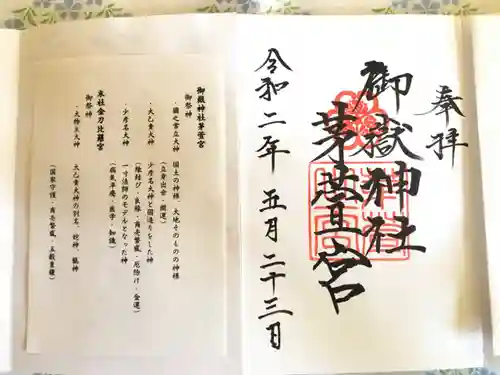 奉拝
御嶽神社
茅萱宮
令和二年 五月二十三日
御嶽神社茅萱宮
御祭神
・國之常立大神 国土の神様 大地そのものの神様
(立身出世・開運)
・大己貴大神 少彦名大神と国造りをした神
(縁結び・良縁・商売繁盛・厄除け・金運)
・少彦名大神 一寸法師のモデルとなった神
(病気平癒・医学・知識)
末社金刀比羅宮
御祭神
・大物主大神 大己貴大神の別名、蛇神、龍神
(国家守護・商売繁盛・五穀豊穣)